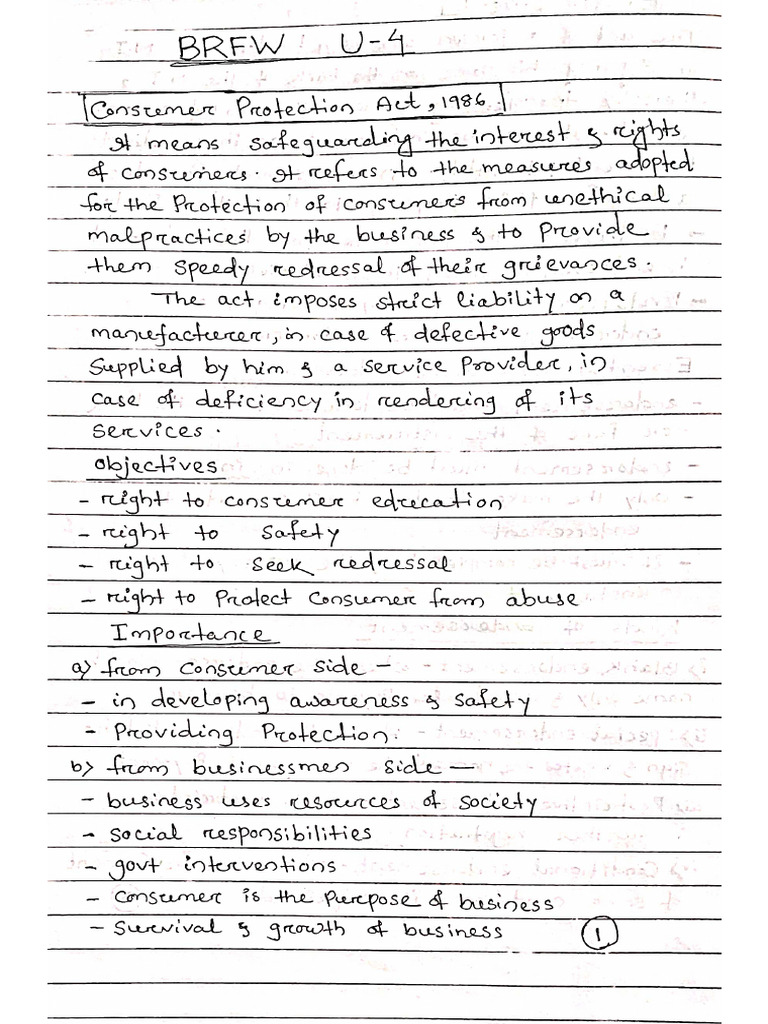 BRFW U-4
Consumer Protection Act, 1986
It means safeguarding the interest & rights
of consumers. It refers to the measures adopted
for the Protection of consumers from unethical
malpractices by the business & to Provide
them speedy redressal of their grievances.
The act imposes strict liability on a
manufacturer, in case of defective goods
Supplied by him & a service Provider, in
case of deficiency in rendering of its
services.
objectives
- right to consumer education
- right to safety
- right to seek redressal
- right to Protect Consumer from abuse
Importance
a) from consumer side -
- in developing awareness & safety
- Providing Protection.
b) from businessmen side -
- business uses resources of society
- social responsibilities
- govt interventions
- Consumer is the purpose of business
- Survival & growth of business 1